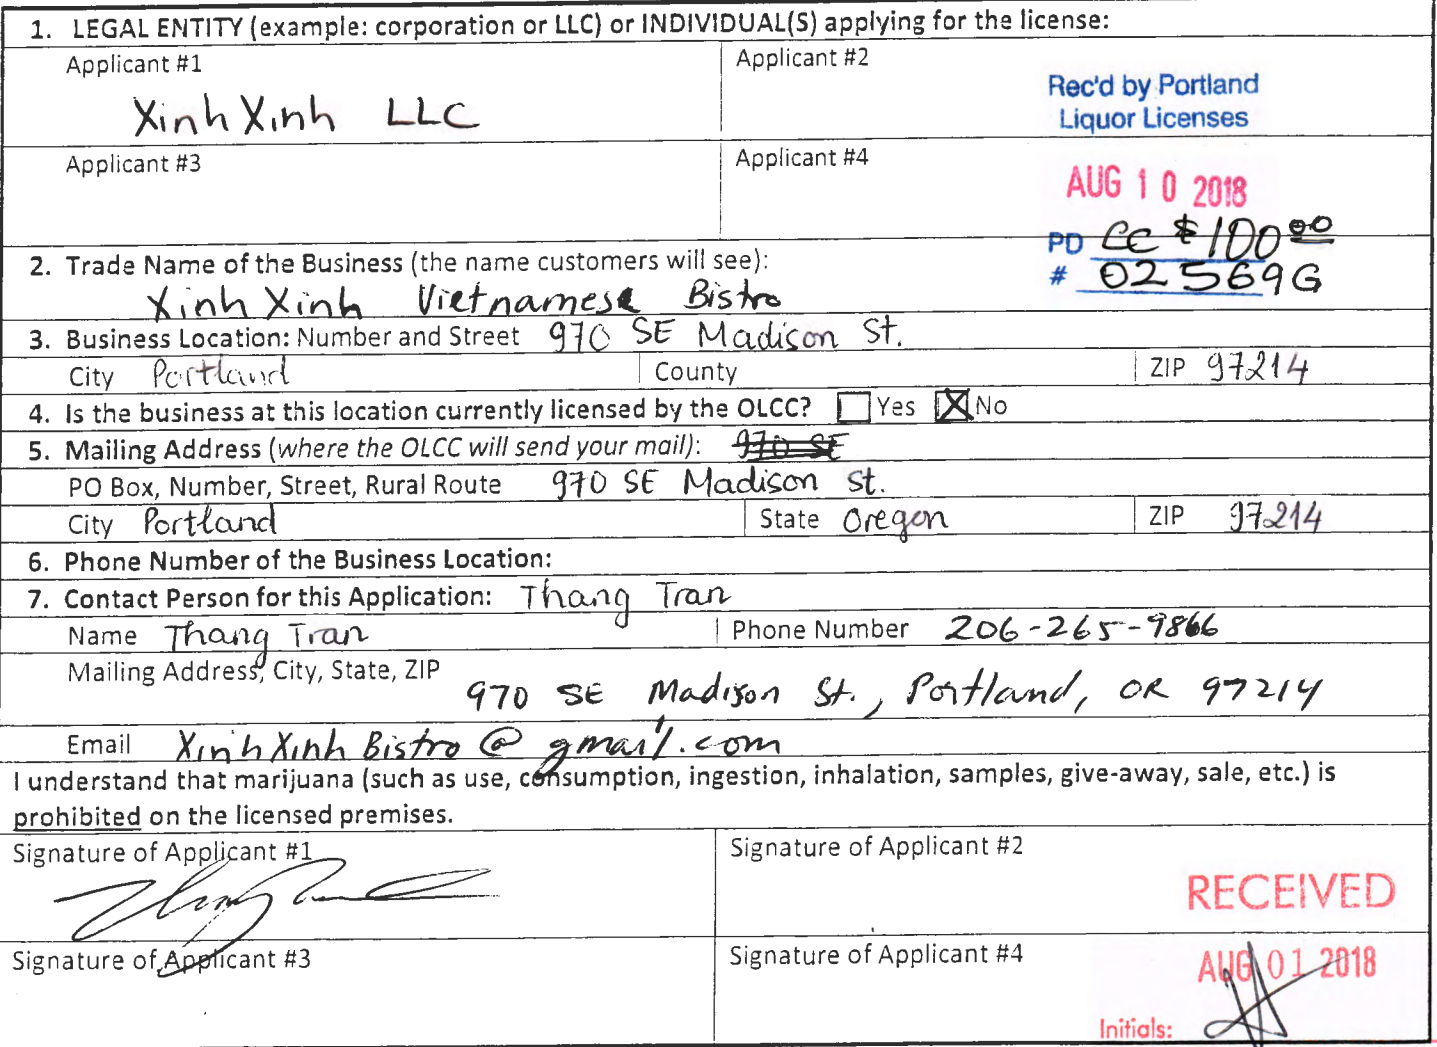 1. LEGAL ENTITY (example: corporation or LLC) or INDIVIDUAL(S) applying for the license:
Applicant #1
Xinh Xinh LLC
Applicant #2
Rec'd by Portland
Liquor Licenses
Applicant #3
Applicant #4
AUG 10 2018
PD CC $100.00
# 02569G
2. Trade Name of the Business (the name customers will see):
Xinh Xinh Vietnamese Bistro
3. Business Location: Number and Street 970 SE Madison St.
City Portland County ZIP 97214
4. Is the business at this location currently licensed by the OLCC? Yes No
5. Mailing Address (where the OLCC will send your mail): 970 SE
PO Box, Number, Street, Rural Route 970 SE Madison St.
City Portland State Oregon ZIP 97214
6. Phone Number of the Business Location:
7. Contact Person for this Application: Thang Tran
Name Thang Tran Phone Number 206-265-9866
Mailing Address, City, State, ZIP
970 SE Madison St., Portland, OR 97214
Email XinhXinhBistro@gmail.com
I understand that marijuana (such as use, consumption, ingestion, inhalation, samples, give-away, sale, etc.) is
prohibited on the licensed premises.
Signature of Applicant #1
Signature of Applicant #2
RECEIVED
Signature of Applicant #3
Signature of Applicant #4
AUG 01 2018
Initials: